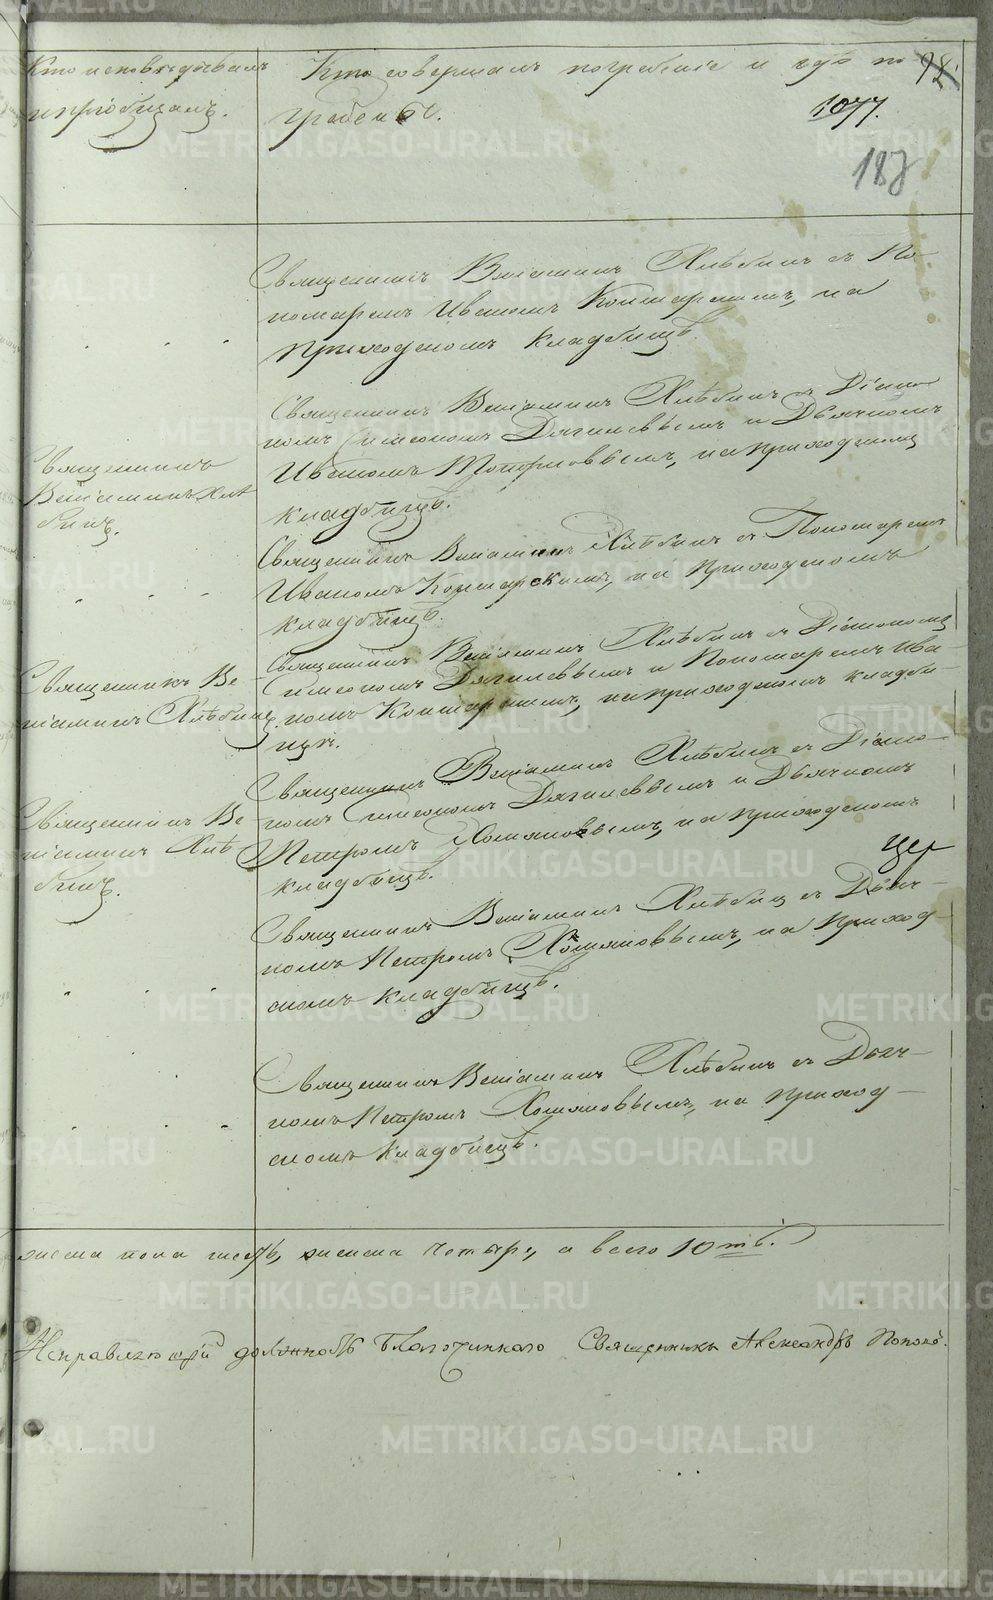 Кто исповѣдывалъ
и пріобщалъ.
Кто совершалъ погребеніе и гдѣ по
гребены.
98.
1077.
187
Священникъ Веніаминъ Хлѣбинъ съ По
номаремъ Иваномъ Контарскимъ, на
приходскомъ кладбищѣ.
Священникъ
Веніаминъ Хлѣ
бинъ.
Священникъ Веніаминъ Хлѣбинъ съ Діако
номъ Симеономъ Дягилевымъ и Дьячкомъ
Иваномъ на приходскомъ
кладбищѣ.
Священникъ Веніаминъ Хлѣбинъ съ Пономаремъ
Иваномъ Контарскимъ, на приходскомъ
кладбищѣ.
Священникъ Ве
ніаминъ Хлѣбинъ.
Священникъ Веніаминъ Хлѣбинъ съ Діакономъ
Симеономъ Дягилевымъ и Пономаремъ Ива
номъ Контарскимъ, на приходскомъ кладби
щѣ.
Священникъ Ве
ніаминъ Хлѣ
бинъ.
Священникъ Веніаминъ Хлѣбинъ съ Діако
номъ Симеономъ Дягилевымъ и Дьячкомъ
Петромъ Хомяковымъ, на приходскомъ
кладбищѣ.
Священникъ Веніаминъ Хлѣбинъ съ Дьяч
комъ Петромъ Хомяковымъ, на приход
скомъ кладбищѣ.
Священникъ Веніаминъ Хлѣбинъ съ Дьяч
комъ Петромъ Хомяковымъ, на приход
скомъ кладбищѣ.
жеска пола шесть, женска четыре, а всего 10ть.
Исправляющій должность Благочиннаго Священникъ Александръ Поповъ.
METRIKI.GASO-URAL.RU